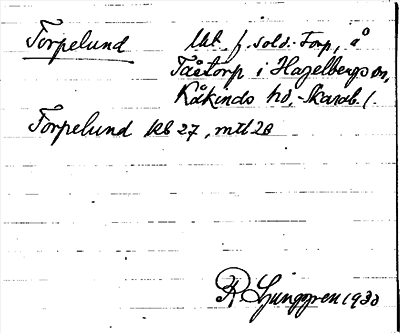 Torpelund Utt f. sold.-torp, å
Tåstorp i Hagelbergs sn,
Kåkinds hd,-Skarab. l.
Torpelund kb 27, mtl 28
R. Ljunggren 1930